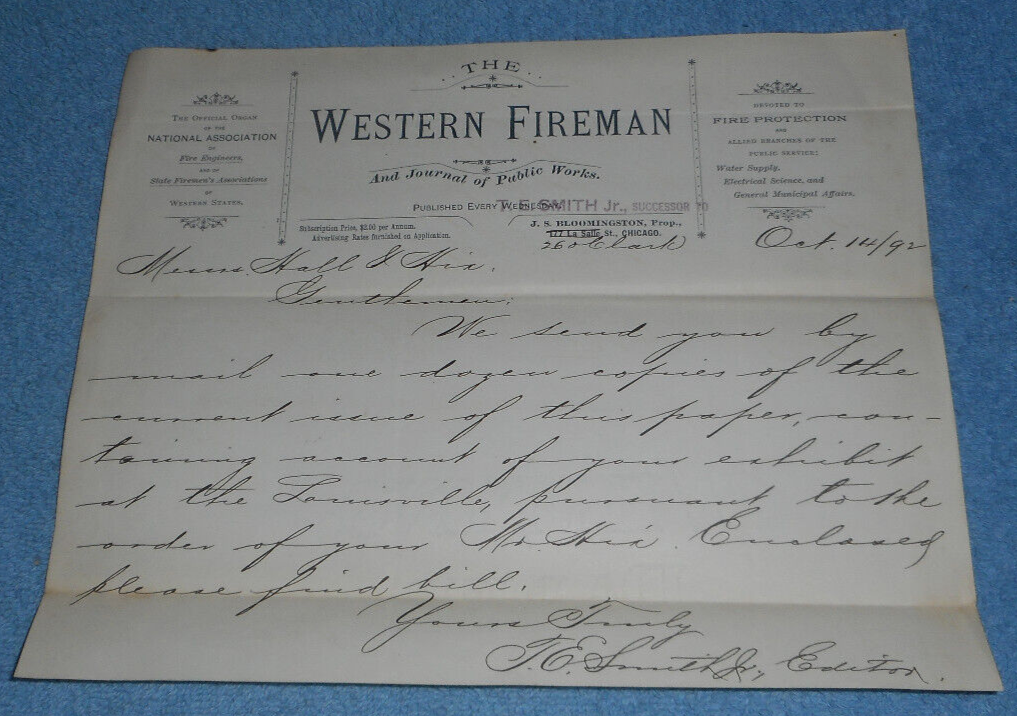 THE
WESTERN FIREMAN
And Journal of Public Works.
PUBLISHED EVERY WEDNESDAY
THE OFFICIAL ORGAN
OF THE
NATIONAL ASSOCIATION
OF
Fire Engineers,
AND OF
State Firemen's Associations
OF
WESTERN STATES.
DEVOTED TO
FIRE PROTECTION
AND
ALLIED BRANCHES OF THE
PUBLIC SERVICE:
Water Supply,
Electrical Science, and
General Municipal Affairs.
T. E. SMITH Jr., SUCCESSOR TO
Subscription Price, $2.00 per Annum.
Advertising Rates furnished on Application.
J. S. BLOOMINGSTON, Prop.,
177 La Salle St., CHICAGO.
260 Clark
Oct. 14/92
Messrs. Hall & Hix.
Gentlemen:
We send you by
mail one dozen copies of the
current issue of this paper, con-
taining account of your exhibit
at the Louisville, pursuant to the
order of your Mr. Hix. Enclosed
please find bill.
Yours Truly
T. E. Smith Jr., Editor.